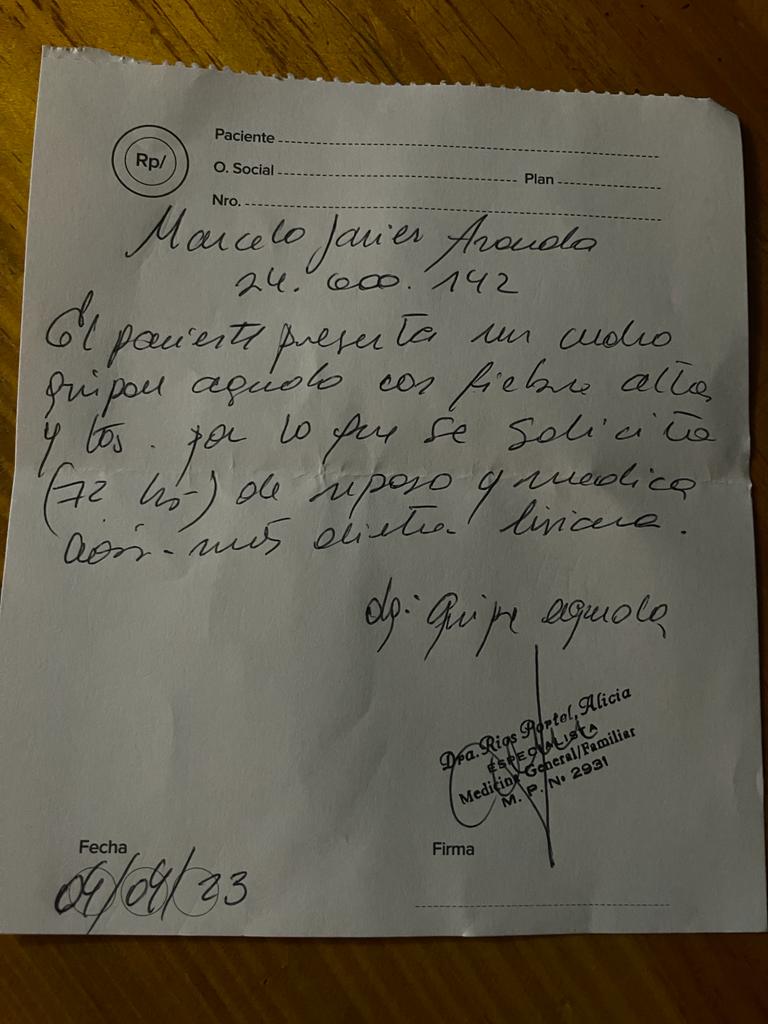 Rp/
Paciente
O. Social Plan
Nro.
Marcelo Javier Aranda
24.600.142
El paciente presenta un cuadro
gripal agudo con fiebre alta
y tos. por lo que se solicita
(72 hs) de reposo y medica
ción - más dieta liviana.
dg: gripe aguda
Dra. Rios Portel, Alicia
ESPECIALISTA
Medicina General/Familiar
M. P. Nº 2931
Fecha
Firma
04/04/23